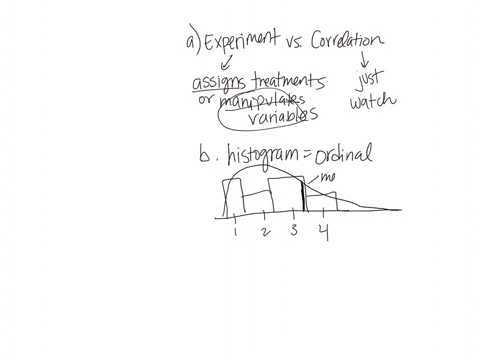 a) Experiment vs. Correlation
assigns treatments
or manipulates
variables
just
watch
b. histogram = ordinal
me
1 2 3 4